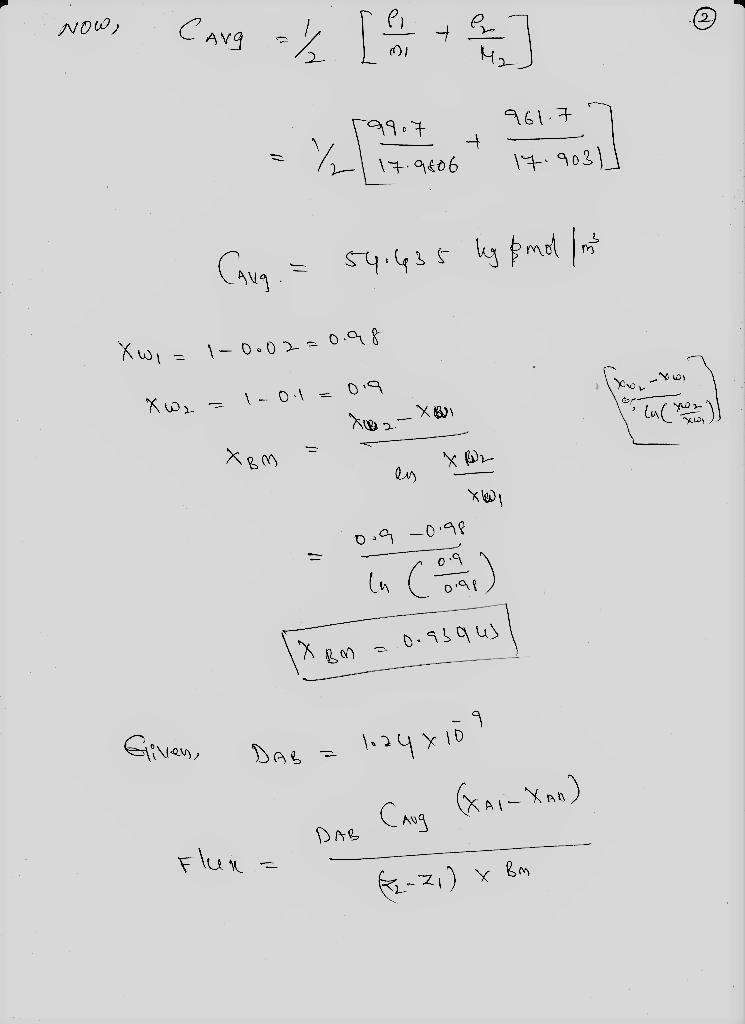 ②
NOW, C Avg = 1/2 [ρ1/m1 + ρ2/M2]
= 1/2 [99.7/17.9806 + 961.7/17.9031]
CAvg. = 54.635 kg mol / m³
Xw1 = 1 - 0.02 = 0.98
Xw2 = 1 - 0.1 = 0.9
XBM = (XB2 - XB1) / ln (XB2/XB1)
[or (Xw2 - Xw1) / ln (Xw2/Xw1)]
= (0.9 - 0.98) / ln (0.9/0.98)
XBM = 0.93943
Given, DAB = 1.24 × 10⁻⁹
Flux = DAB CAvg (XA1 - XA2) / (Z2 - Z1) X BM